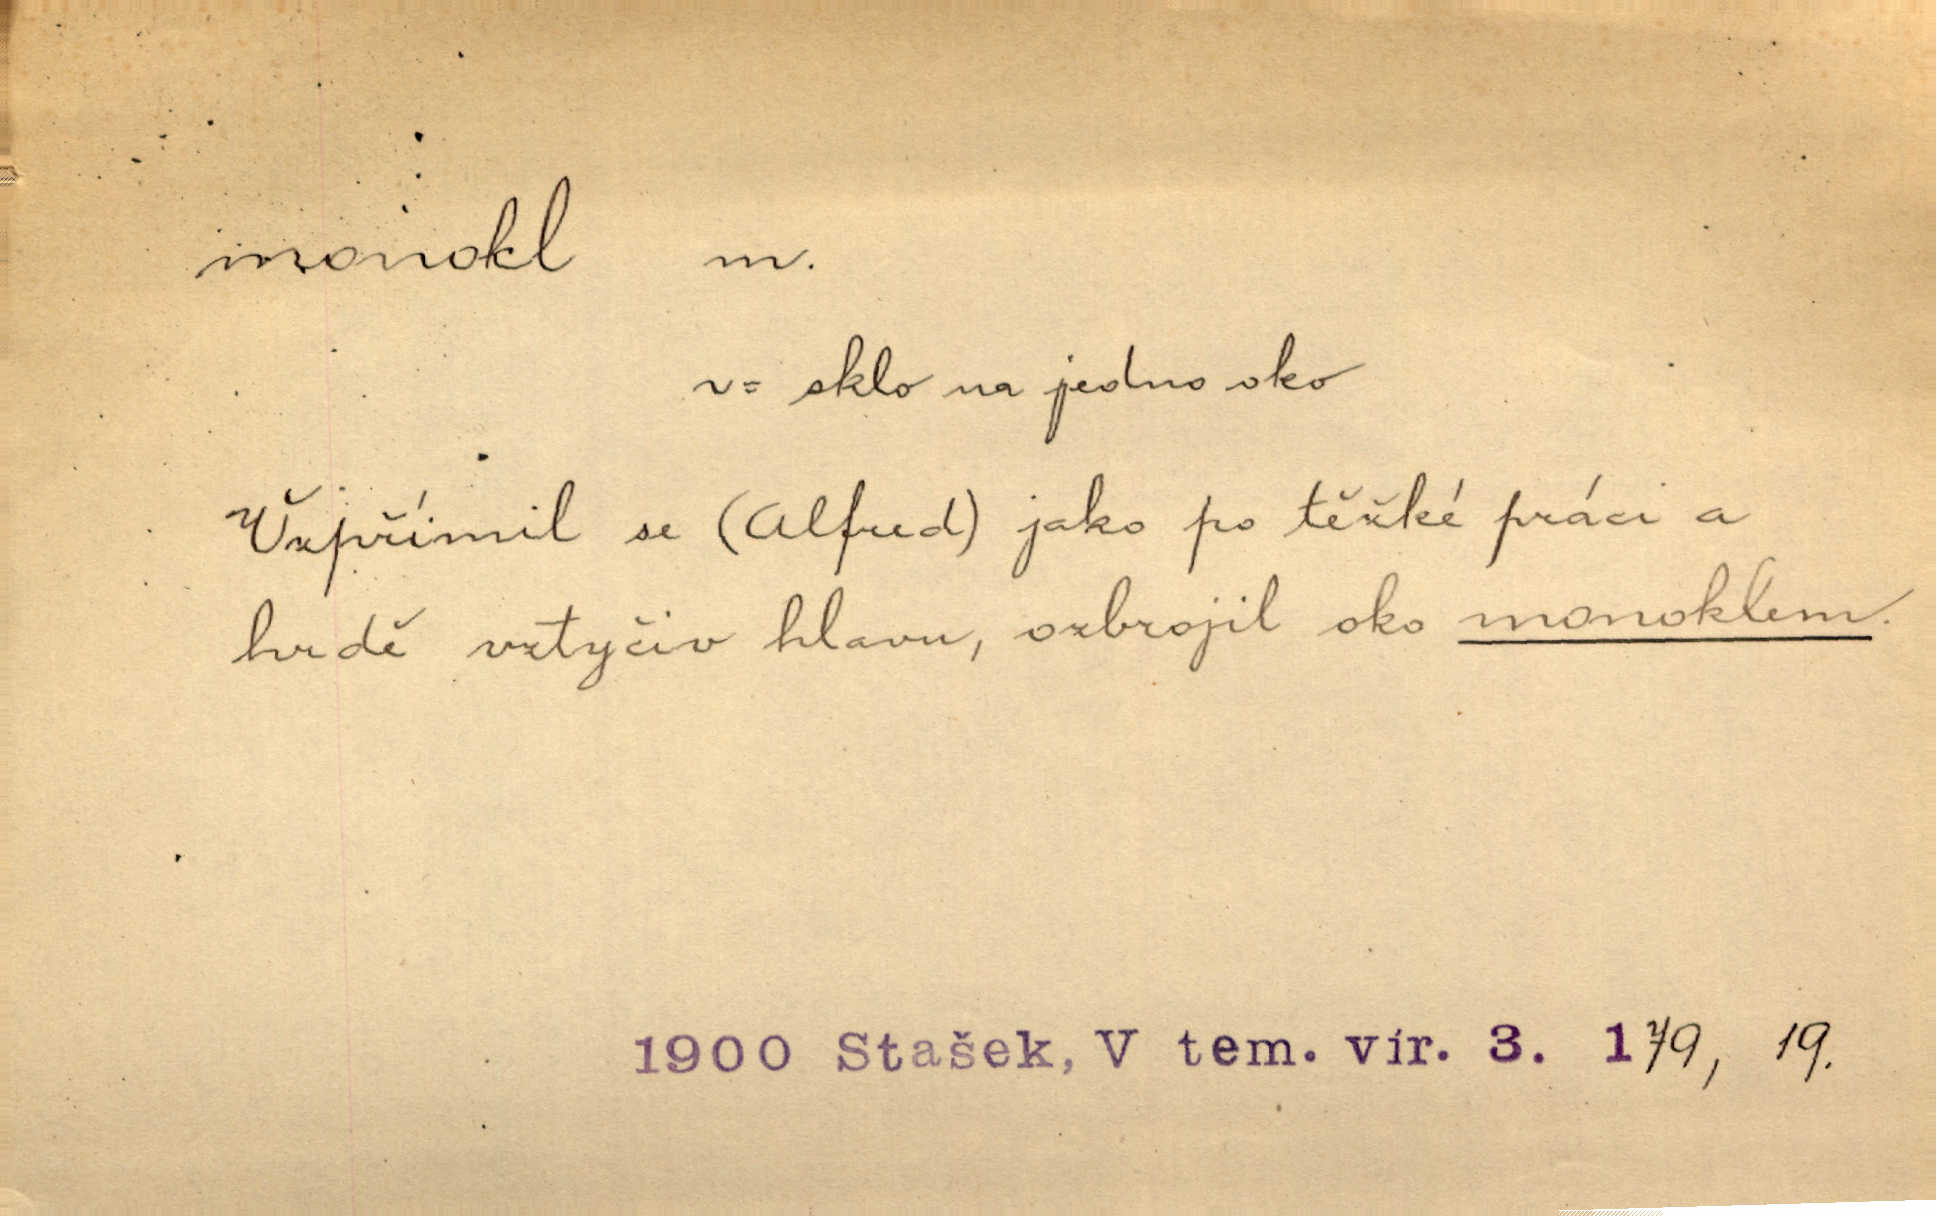 monokl m.
v= sklo na jedno oko
Vzpřímil se (Alfred) jako po těžké práci a
hrdě vztyčiv hlavu, ozbrojil oko monoklem.
1900 Stašek, V tem. vír. 3. 179, 19.